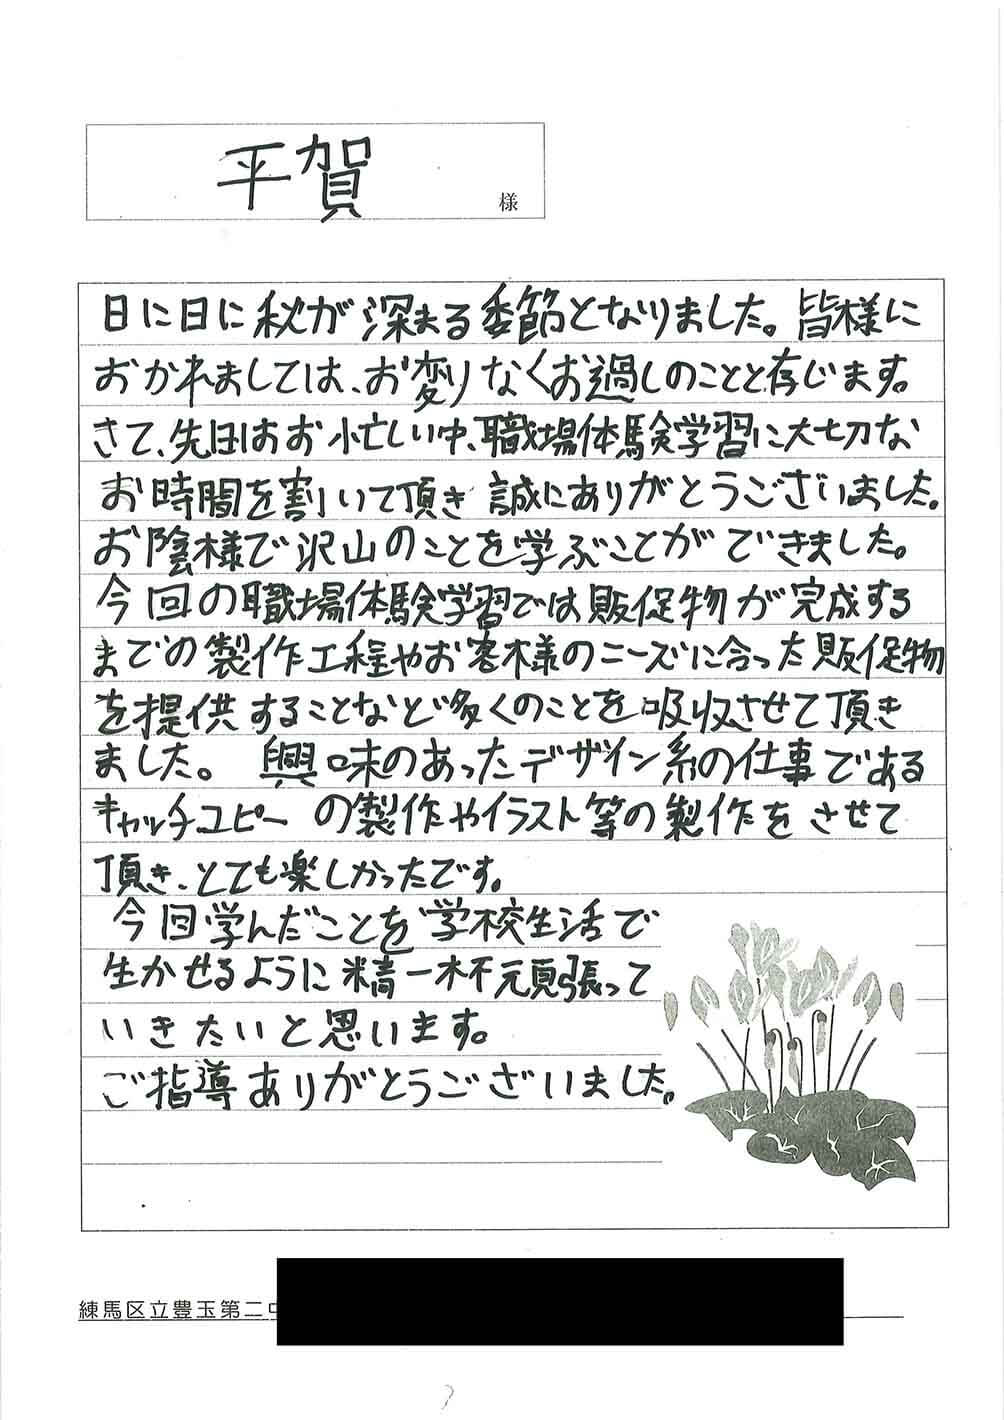 平賀 様
日に日に秋が深まる季節となりました。皆様に
おかれましては、お変りなくお過しのことと存じます。
さて、先日はお忙しい中、職場体験学習に大切な
お時間を割いて頂き 誠にありがとうございました。
お陰様で沢山のことを学ぶことができました。
今回の職場体験学習では販促物が完成する
までの製作工程やお客様のニーズに合った販促物
を提供することなど多くのことを吸収させて頂き
ました。興味のあったデザイン系の仕事である
キャッチコピーの製作やイラスト等の製作をさせて
頂き、とても楽しかったです。
今回学んだことを学校生活で
生かせるように精一杯頑張って
いきたいと思います。
ご指導ありがとうございました。
練馬区立豊玉第二